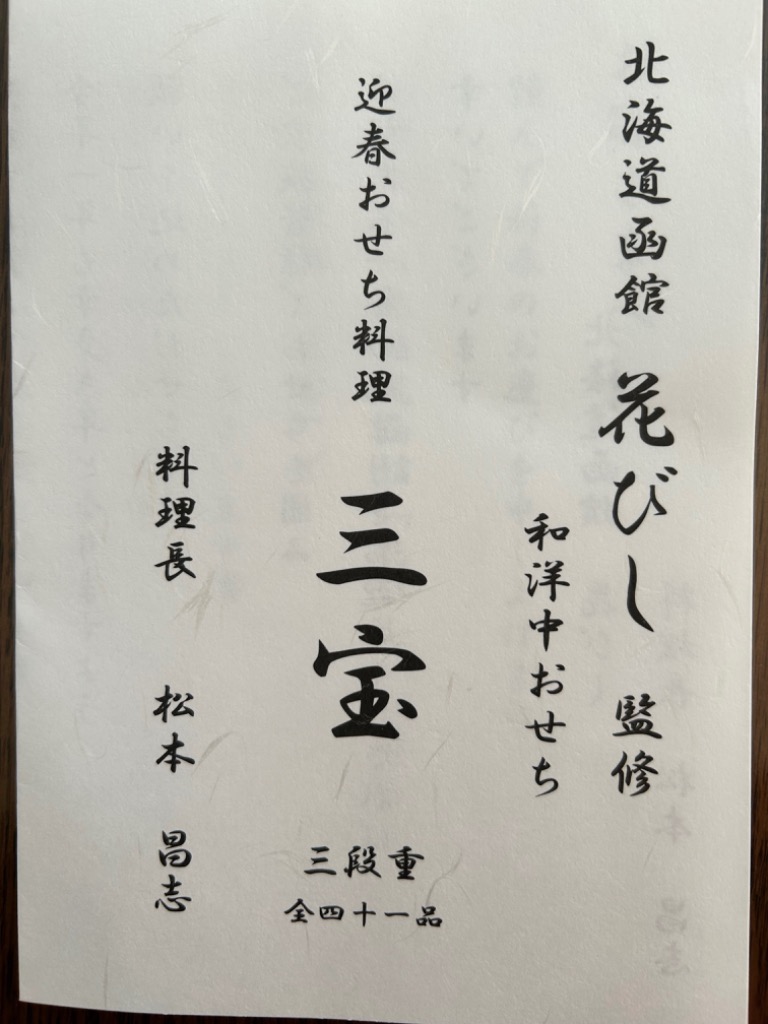 北海道函館 花びし 監修
和洋中おせち
迎春おせち料理 三宝
三段重
全四十一品
料理長 松本 昌志